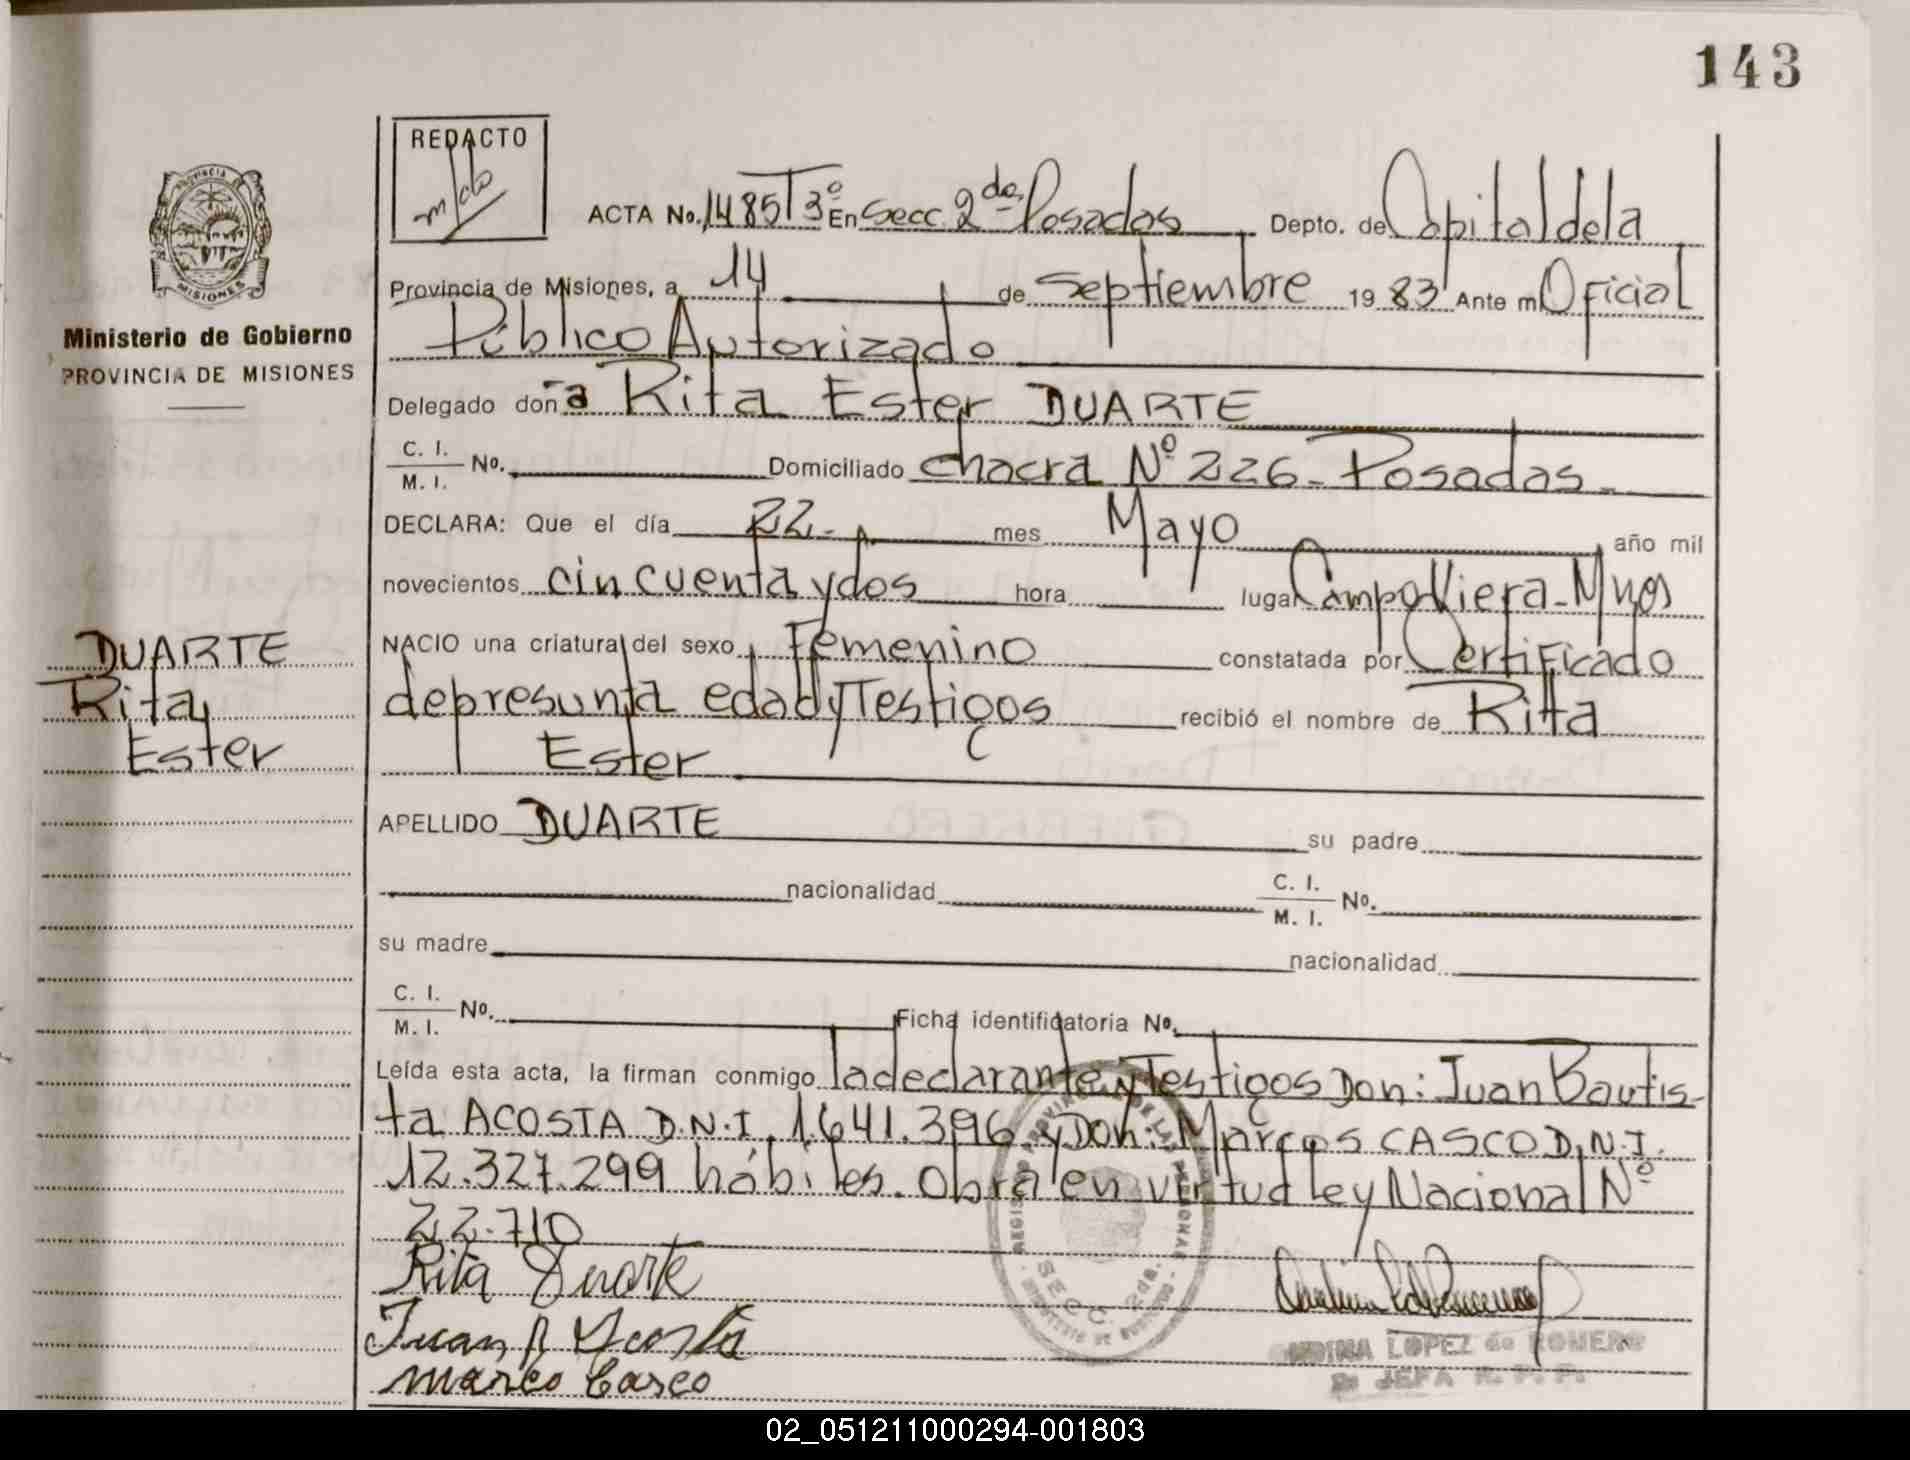 143
REDACTO
ACTA No. 1485 T 3º En Secc. 2da. Posadas Depto. de Capital de la
Provincia de Misiones, a 14 de Septiembre 1983 Ante mi Oficial
Público Autorizado
Ministerio de Gobierno
PROVINCIA DE MISIONES
Delegado doña Rita Ester DUARTE
C. I. / M. I. No. Domiciliado chacra Nº 226 - Posadas -
DECLARA: Que el día 22- mes Mayo año mil
novecientos cincuenta y dos hora lugar Campo Viera - Mnes
NACIO una criatura del sexo Femenino constatada por Certificado
de presunta edad y Testigos recibió el nombre de Rita
Ester
DUARTE
Rita
Ester
APELLIDO DUARTE su padre
nacionalidad C. I. / M. I. No.
su madre nacionalidad
C. I. / M. I. No. Ficha identificatoria No.
Leída esta acta, la firman conmigo la declarante y Testigos Don: Juan Bautis-
ta ACOSTA D.N.I. 1.641.396 y Don: Marcos CASCO D.N.I.
12.327.299 hábiles. Obra en virtud Ley Nacional Nº
22.710
Rita Duarte
Juan B Acosta
Marco Casco
LOPEZ de ROMERO
JEFA R. P. P.
02_051211000294-001803